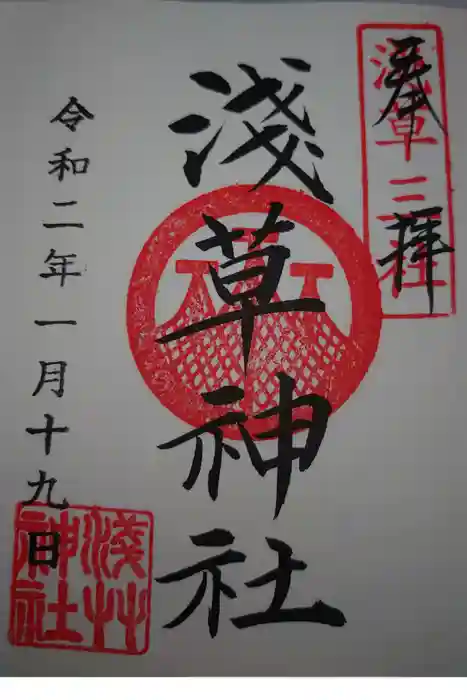 奉拝
淺草三社
淺草神社
令和二年一月十九日
淺艸神社